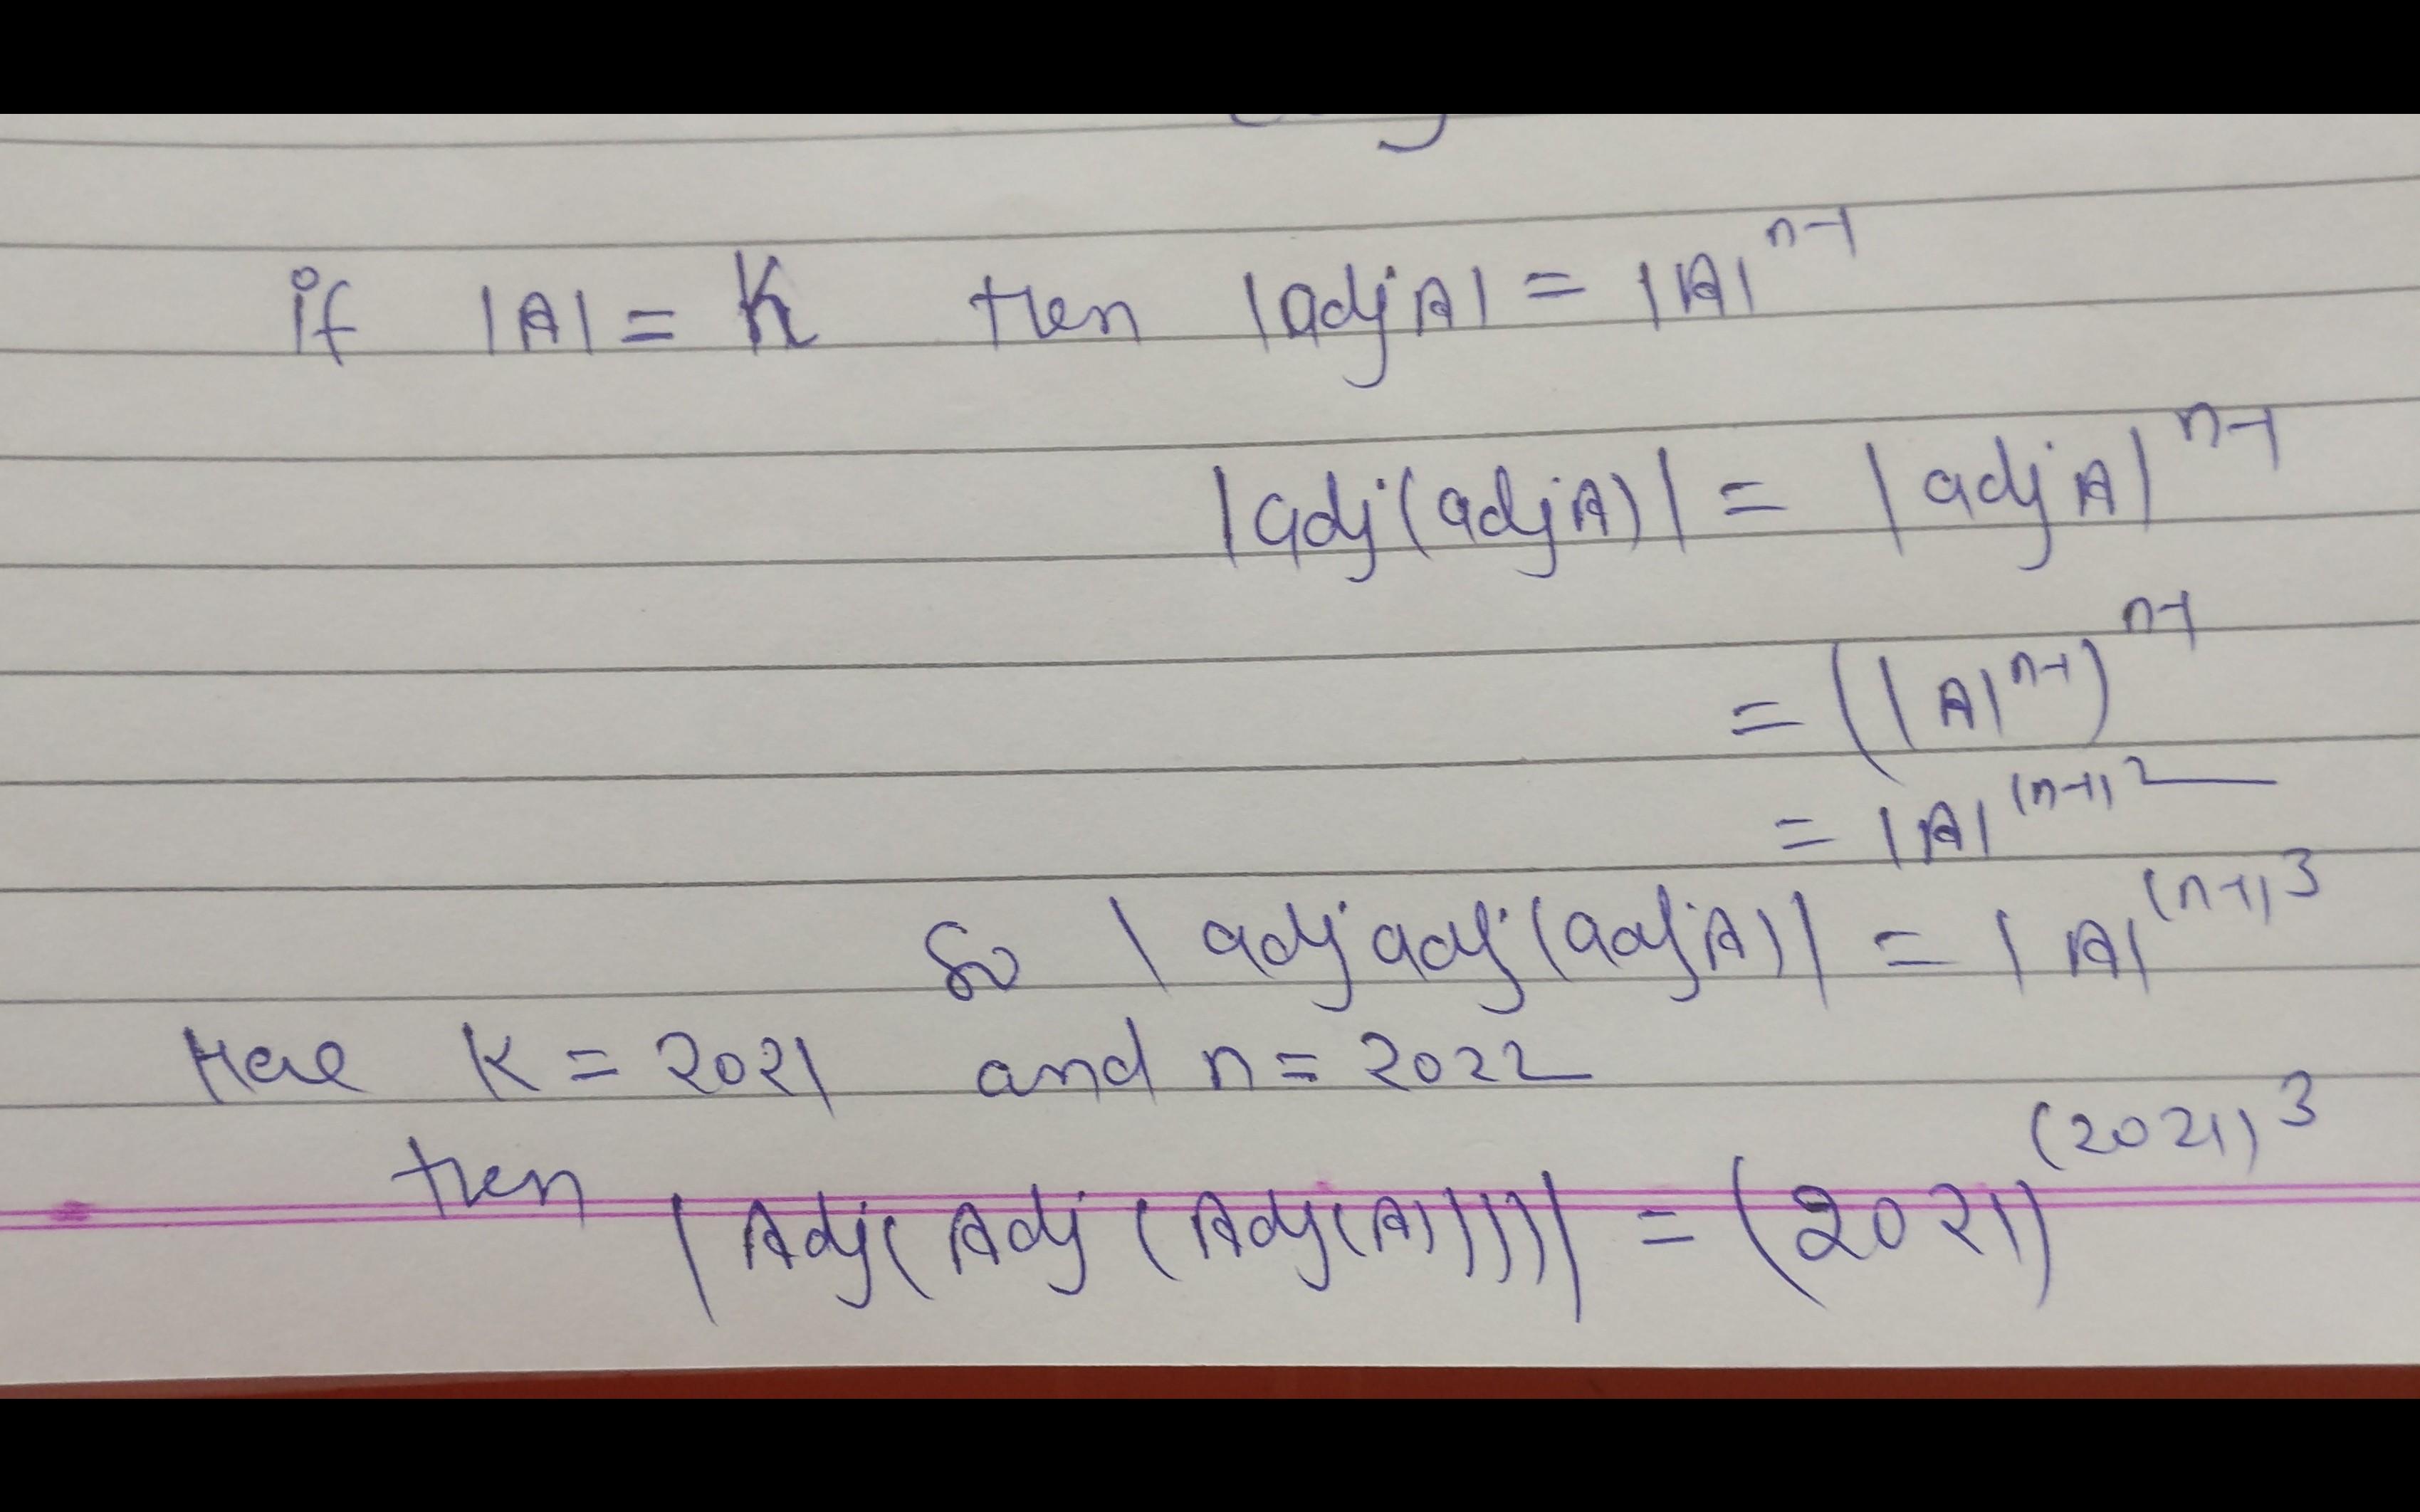 if |A| = K then |adj A| = |A|^{n-1}
|adj(adj A)| = |adj A|^{n-1}
= (|A|^{n-1})^{n-1}
= |A|^{(n-1)^2}
So |adj adj (adj A)| = |A|^{(n-1)^3}
Here K = 2021 and n = 2022
then |Adj(Adj(Adj(A))))| = (2021)^{(2021)^3}